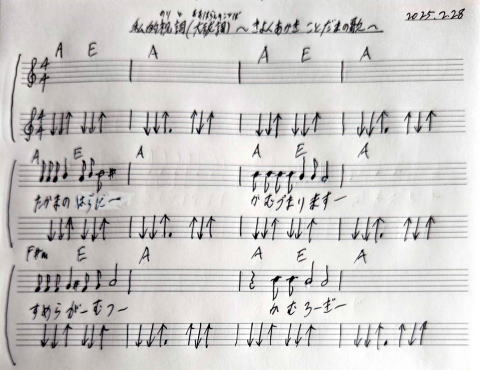 のりと おおはらえのことば
私的祝詞(大祓詞)～きよくあかき ことだまの歌～ 2025.2.28
A E A A E A
4/4
4/4
A E A A E A
たかまの はらにー かむづまり ますー
F#m E A A E A
すめらがーむつー かむろーぎー